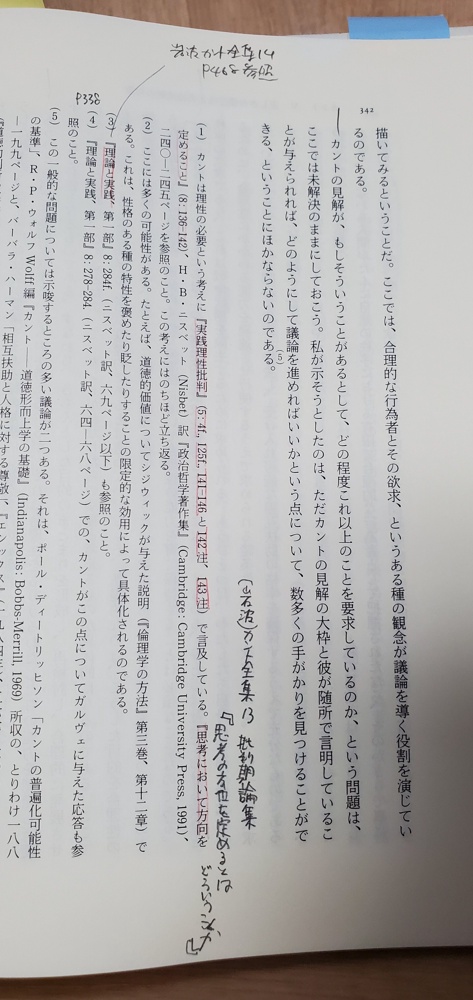 342
描いてみるということだ。ここでは、合理的な行為者とその欲求、というある種の観念が議論を導く役割を演じてい
るのである。
カントの見解が、もしそういうことがあるとして、どの程度これ以上のことを要求しているのか、という問題は、
ここでは未解決のままにしておこう。私が示そうとしたのは、ただカントの見解の大枠と彼が随所で言明しているこ
とが与えられれば、どのようにして議論を進めればいいかという点について、数多くの手がかりを見つけることがで
きる、ということにほかならないのである。(5)
(岩波)カント全集13 批判期論集
『思考の方位を定めるとは
どういうことか』
(1) カントは理性の必要という考えに『実践理性批判』(5: 4f, 125f, 141-146と142注、143注)で言及している。『思考において方向を
定めること』(8: 136-142)、H・B・ニスベット(Nisbet)訳『政治哲学著作集』(Cambridge: Cambridge University Press, 1991)、
二四〇―二四五ページを参照のこと。この考えにはのちほど立ち返る。
(2) ここには多くの可能性がある。たとえば、道徳的価値についてシジウィックが与えた説明(『倫理学の方法』第三巻、第十二章)で
ある。これは、性格のある種の特性を褒めたり貶したりすることの限定的な効用によって具体化されるのである。
(3) 『理論と実践、第一部』8: 284f.(ニスベット訳、六九ページ以下)も参照のこと。
P338
(4) 『理論と実践、第一部』8: 278-284.(ニスベット訳、六四―六八ページ)での、カントがこの点についてガルヴェに与えた応答も参
照のこと。
(5) この一般的な問題については示唆するところの多い議論が二つある。それは、ポール・ディートリッヒソン「カントの普遍化可能性
の基準」、R・P・ウォルフ Wolff 編『カント 道徳形而上学の基礎』(Indianapolis: Bobbs-Merrill, 1969)所収の、とりわけ一八八
―一九九ページと、バーバラ・ハーマン「相互扶助と人格に対する尊敬」、『エシックス』